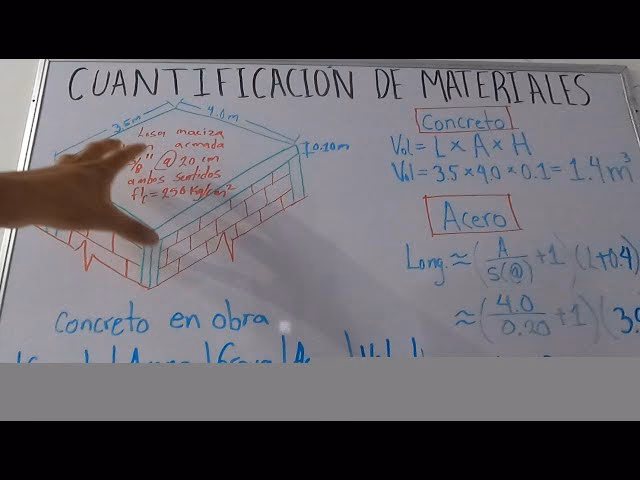 CUANTIFICACIÓN DE MATERIALES
3.5m
4.0m
Losa maciza
armada
@ 20 cm
ambos sentidos
f'c = 250 Kg/cm²
0.10m
Concreto
Vol = L × A × H
Vol = 3.5 × 4.0 × 0.1 = 1.4 m³
Acero
Long. ≈ (A / S(@) + 1) (L+0.4)
≈ (4.0 / 0.20 + 1) (3.9
Concreto en obra